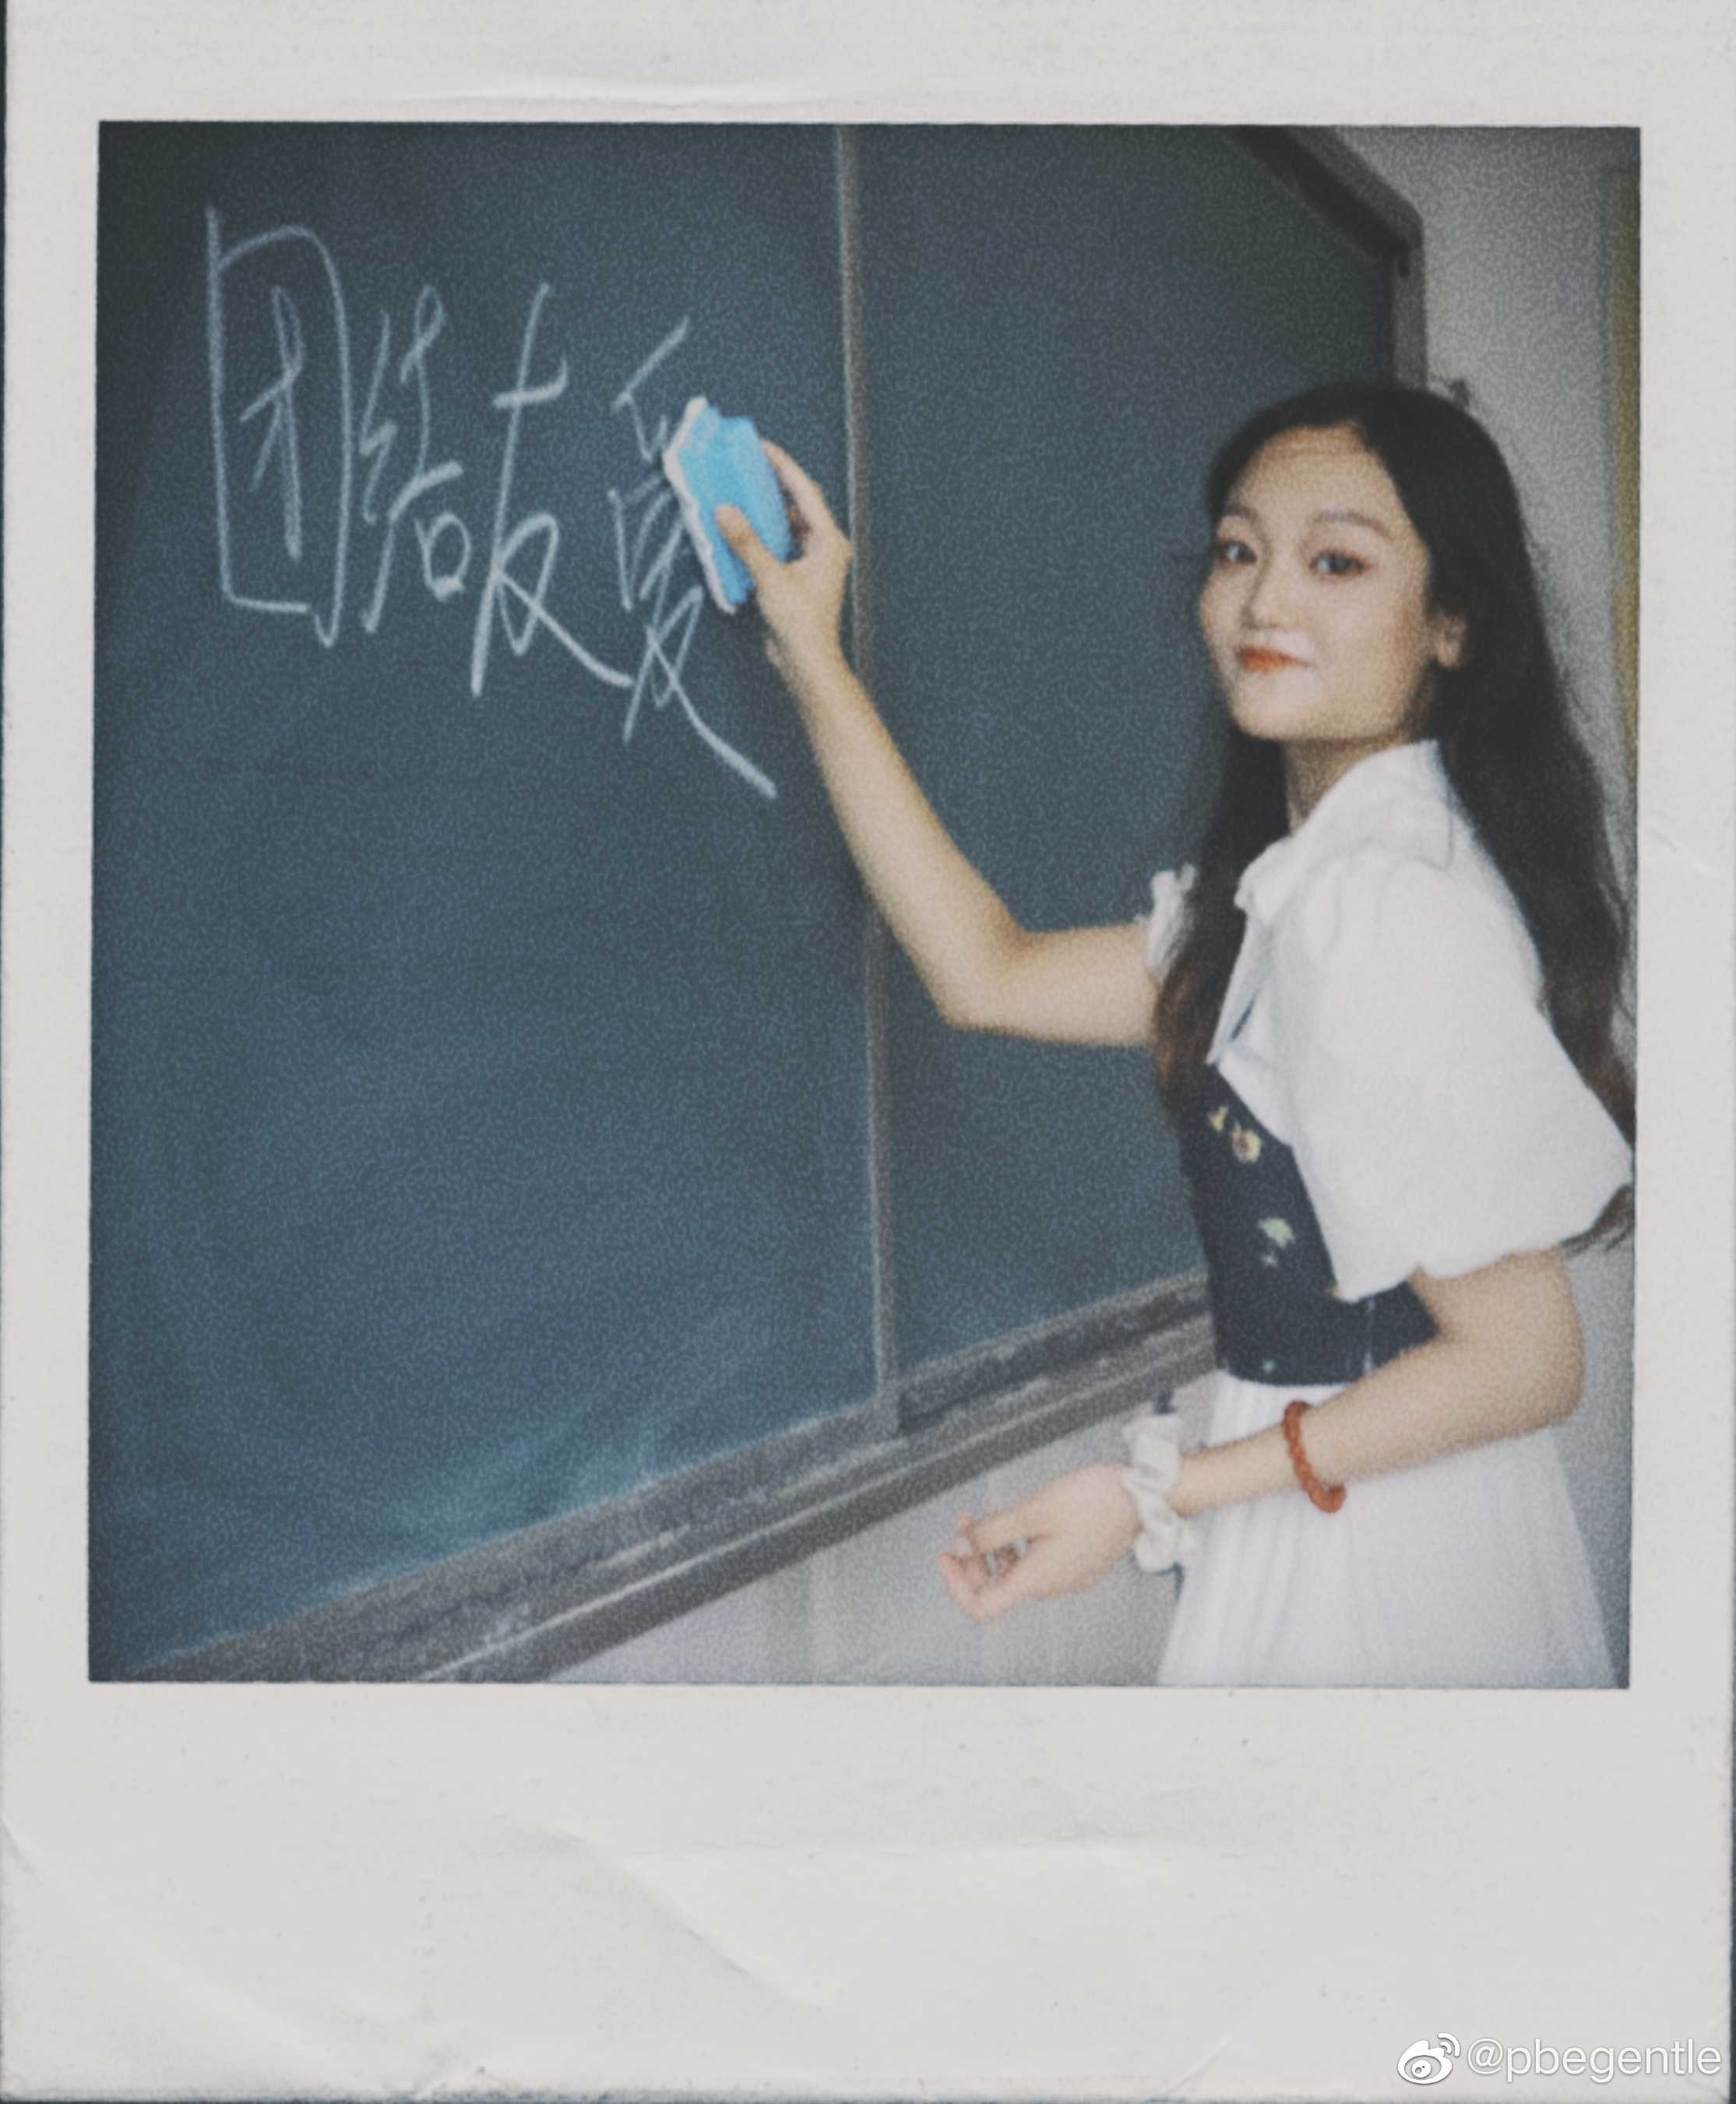 团结友爱
@pbegentle